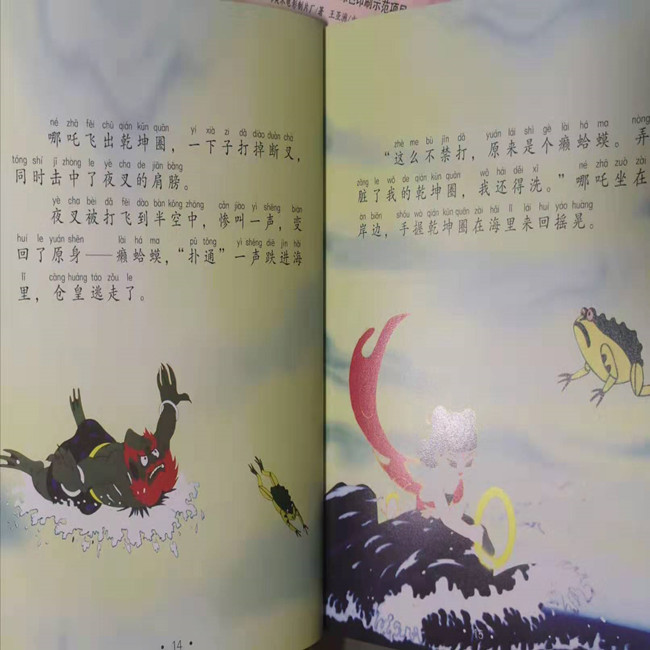 印刷示范项目
né zhā fēi chū qián kūn quān yí xià zi dǎ diào duàn chā
哪吒飞出乾坤圈，一下子打掉断叉，
tóng shí jī zhòng le yè cha de jiān bǎng
同时击中了夜叉的肩膀。
yè cha bèi dǎ fēi dào bàn kōng zhōng cǎn jiào yì shēng biàn
夜叉被打飞到半空中，惨叫一声，变
huí le yuán shēn lài há ma pū tōng yì shēng diē jìn hǎi
回了原身——癞蛤蟆，“扑通”一声跌进海
lǐ cāng huáng táo zǒu le
里，仓皇逃走了。
• 14 •
zhè me bù jīn dǎ yuán lái shì gè lài há ma nòng
“这么不禁打，原来是个癞蛤蟆。弄
zāng le wǒ de qián kūn quān wǒ hái děi xǐ né zhā zuò zài
脏了我的乾坤圈，我还得洗。”哪吒坐在
àn biān shǒu wò qián kūn quān zài hǎi lǐ lái huí yáo huàng
岸边，手握乾坤圈在海里来回摇晃。